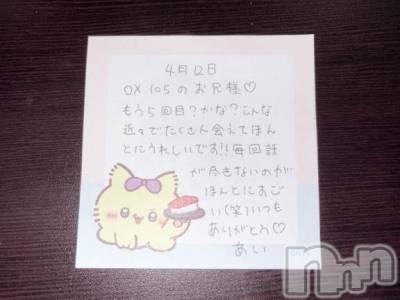 4月12日
OX 105のお兄様♡
もう5回目?かな?こんな
近々でたくさん会えてほん
とにうれしいです!!毎回話
が尽きないのが
ほんとにすご
い(笑)いつも
ありがとう♡
あい